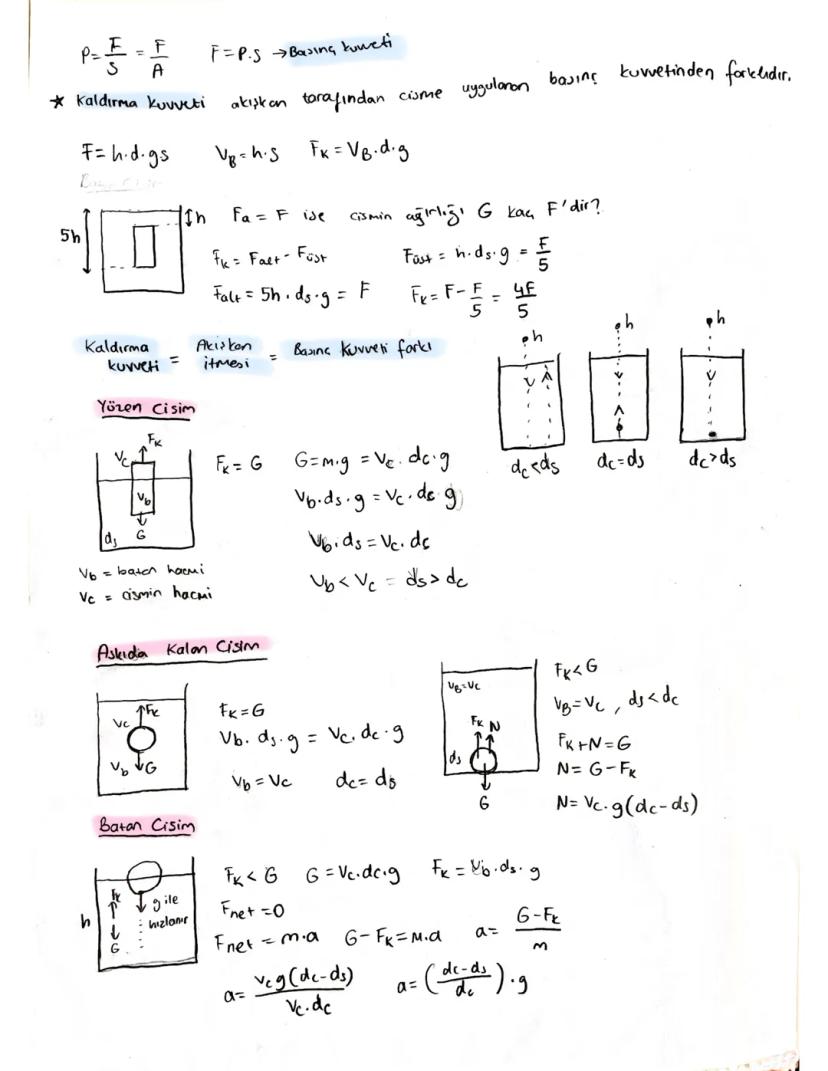 P = F/S = F/A   F = P.S → Basınç kuvveti
* Kaldırma kuvveti akışkan tarafından cisme uygulanan basınç kuvvetinden farklıdır.
F = h.d.gs   VB = h.s   FK = VB.d.g
5h   h   Fa = F ise cismin ağırlığı G kaç F'dir?
FK = Falt - Füst   Füst = h.ds.g = F/5
Falt = 5h.ds.g = F   FK = F - F/5 = 4F/5
Kaldırma kuvveti = Akışkan itmesi = Basınç kuvveti farkı
h   h   h
dc<ds   dc=ds   dc>ds
Yüzen Cisim
Vc   FK   Vb   G   ds
FK = G   G = m.g = Vc.dc.g
Vb.ds.g = Vc.dc.g
Vb.ds = Vc.dc
Vb < Vc = ds > dc
Vb = batan hacmi
Vc = cismin hacmi
Askıda Kalan Cisim
FK   Vc   Vb   G
FK = G
Vb.ds.g = Vc.dc.g
Vb = Vc   dc = ds
VB = Vc   FK   N   ds   G
FK < G
VB = Vc, ds < dc
FK + N = G
N = G - FK
N = Vc.g(dc - ds)
Batan Cisim
h   FK   G   g ile hızlanır
FK < G   G = Vc.dc.g   FK = Vb.ds.g
Fnet = 0
Fnet = m.a   G - FK = m.a   a = G-FK/m
a = Vcg(dc-ds)/Vc.dc   a = (dc-ds/dc).g